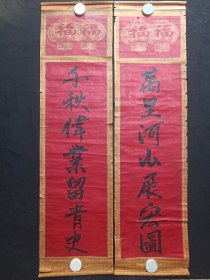 福福
萬里河山展宏圖
福福
千秋偉業留青史